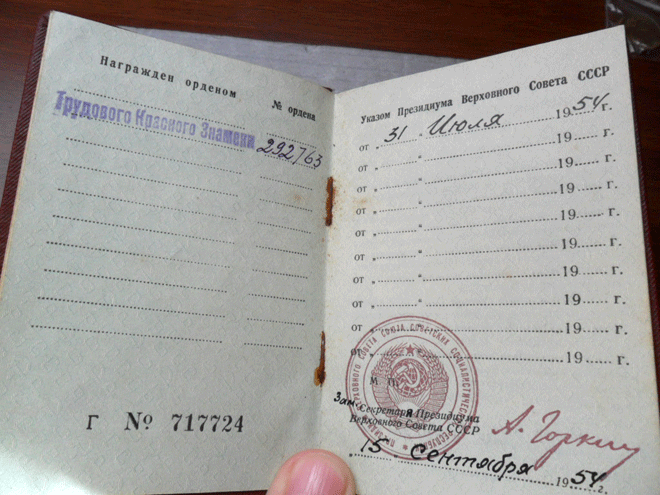 Награжден орденом
№ ордена
Трудового Красного Знамени
292763
Г № 717724
Указом Президиума Верховного Совета СССР
от „ 31 " Июля 1954 г.
от „ " 19 г.
от „ " 19 г.
от „ " 19 г.
от „ " 19 г.
от „ " 19 г.
от „ " 19 г.
от „ " 19 г.
от „ " 19 г.
М. П.
Зам. Секретаря Президиума
Верховного Совета СССР
А. Горкин
15 Сентября 1954 г.